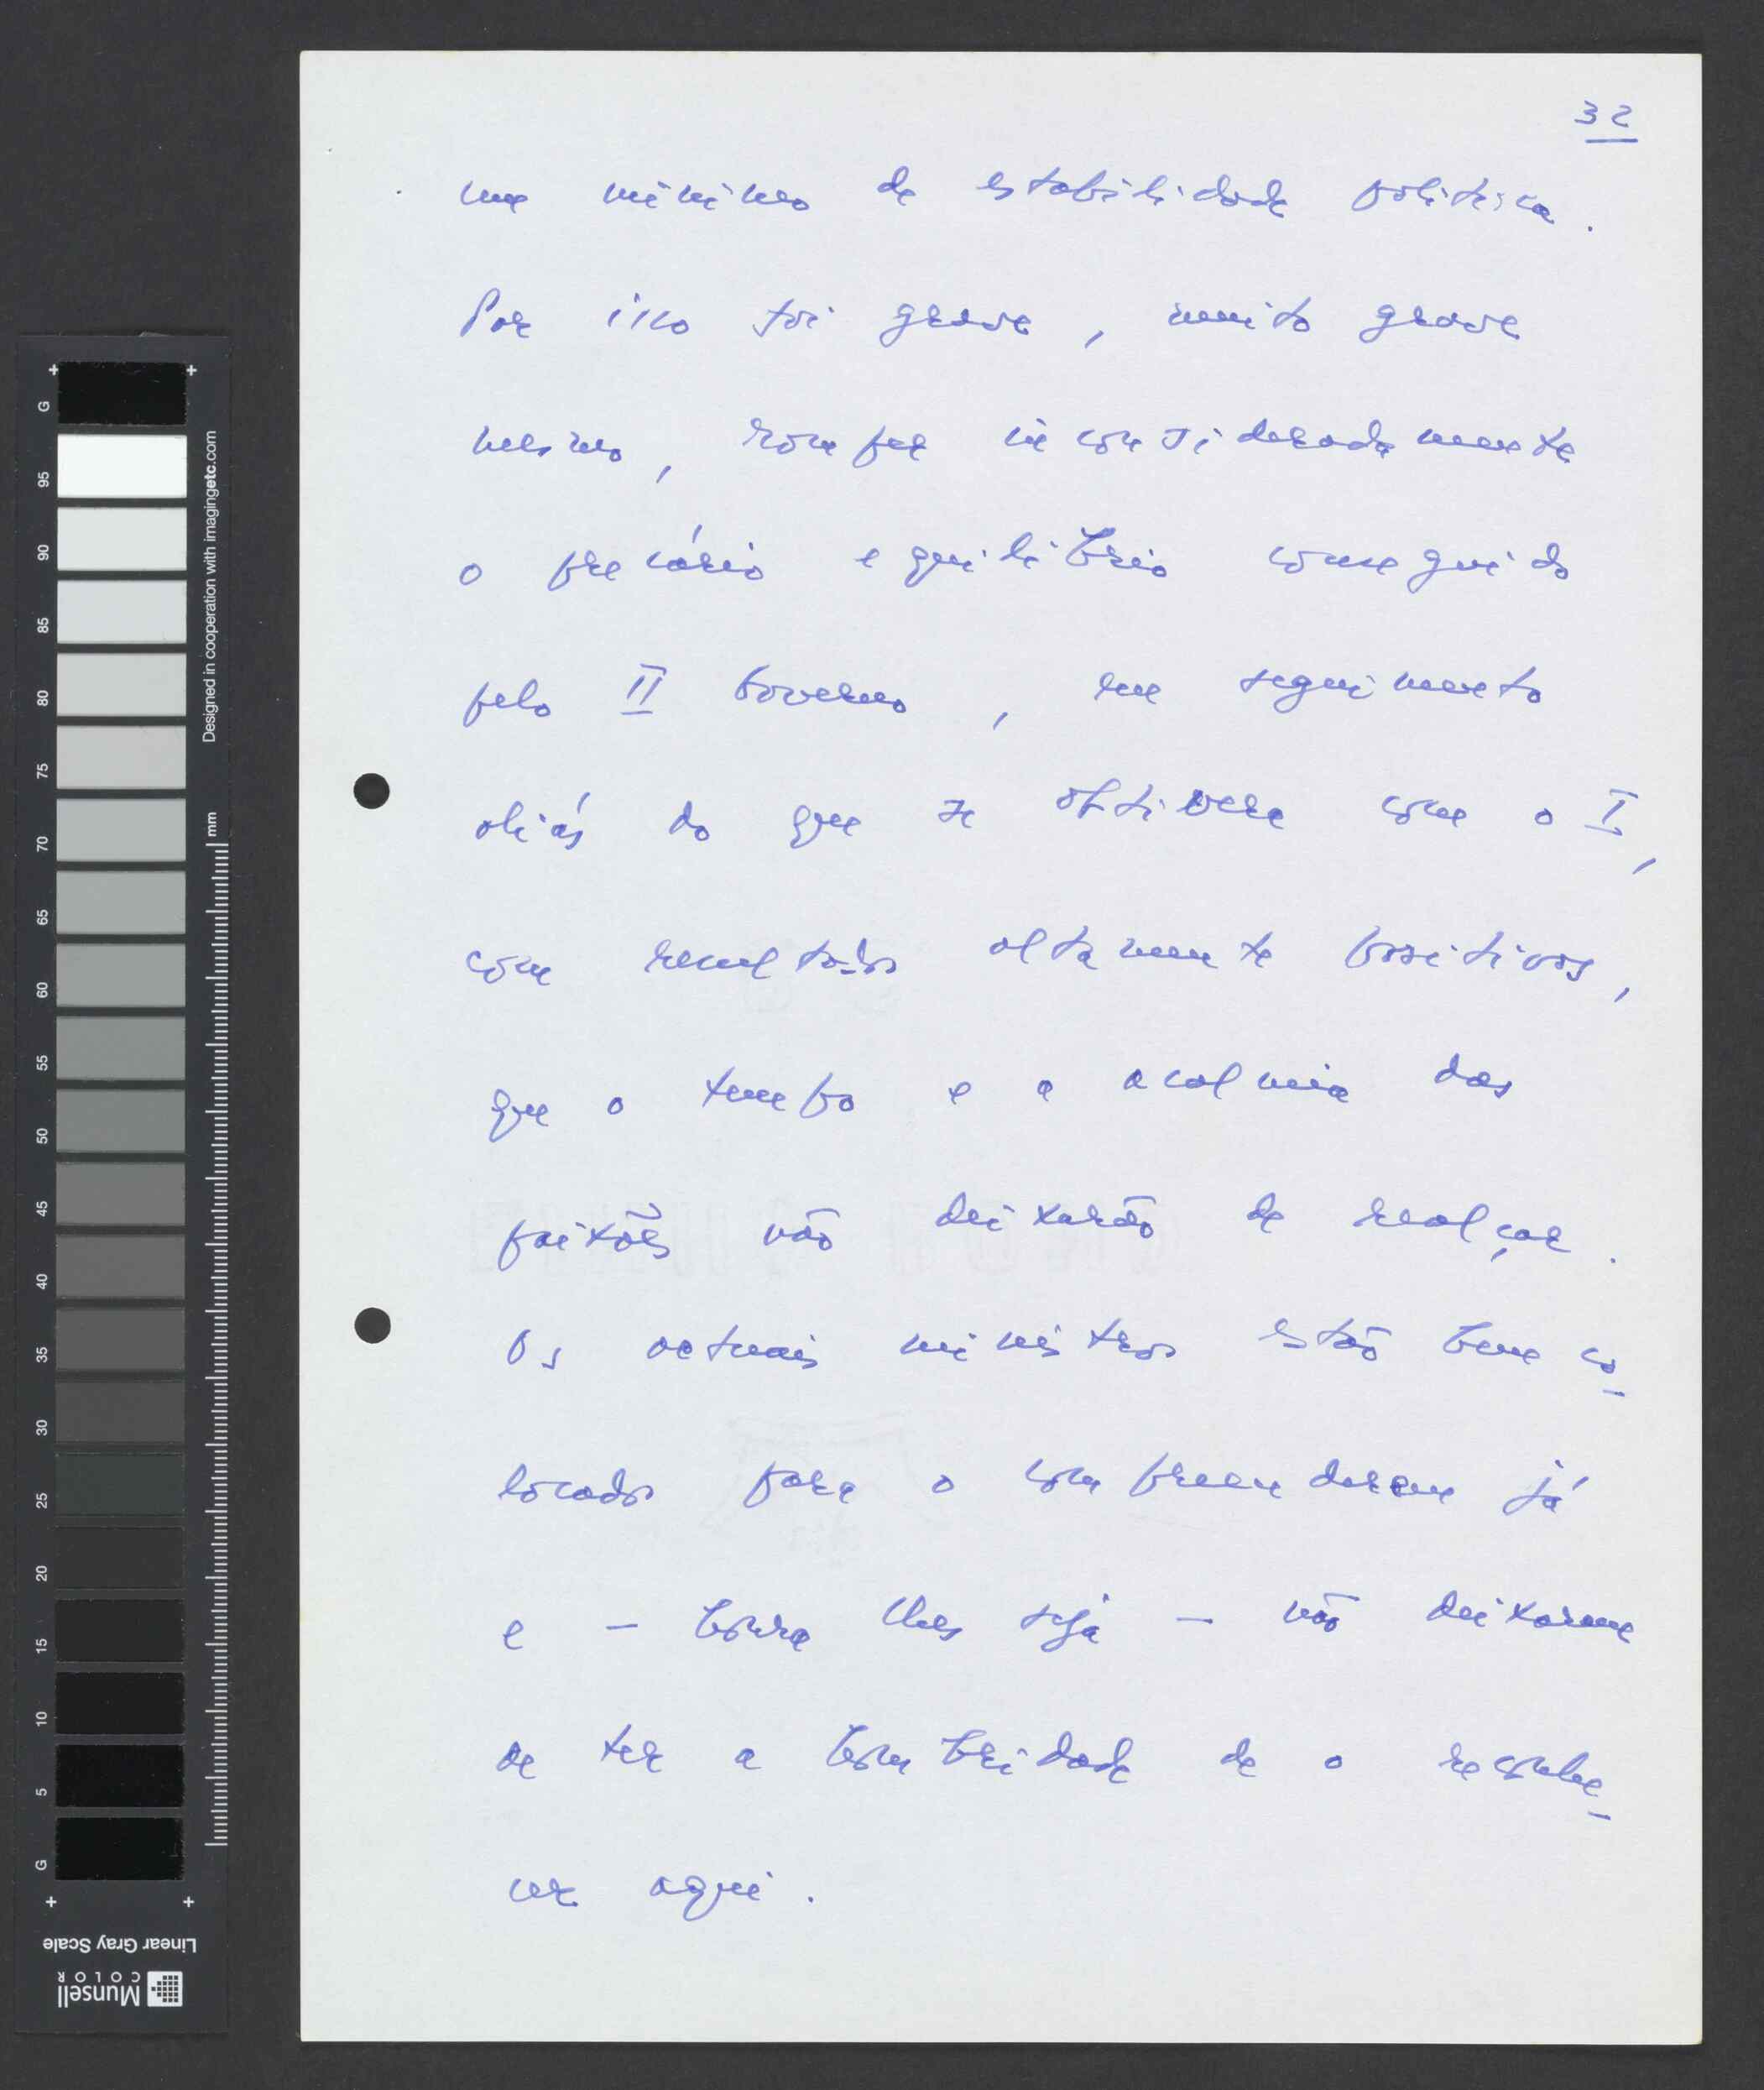 32
um mínimo de estabilidade política.
Por isso foi grave, muito grave
mesmo, romper inconsideradamente
o precário equilíbrio conseguido
pelo II Governo, em seguimento
aliás do que se obtivera com o I,
com resultados altamente positivos,
que o tempo e a acalmia das
paixões não deixarão de realçar.
Os actuais ministros estão bem co-
locados para o compreenderem já
e – honra lhes seja – não deixaram
de ter a hombridade de o reconhe-
cer aqui.
G
95
90
85
80
75
70
65
60
55
50
45
40
35
30
25
20
15
10
5
G
Designed in cooperation with imagingetc.com
mm
Linear Gray Scale
Munsell
COLOR